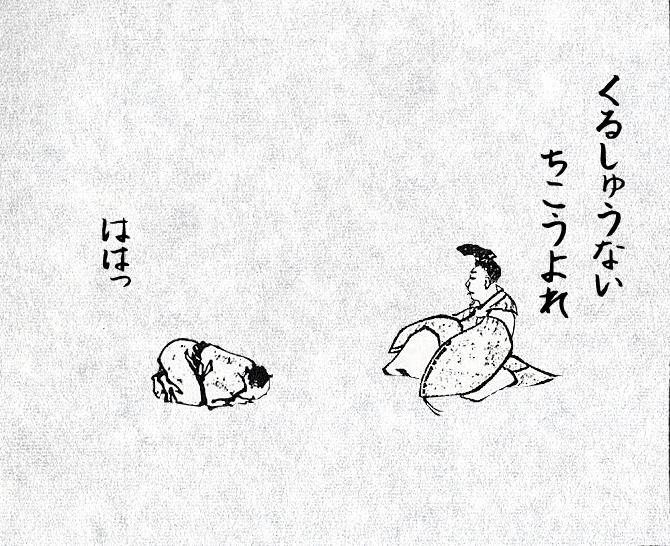 くるしゅうない
ちこうよれ
ははっ